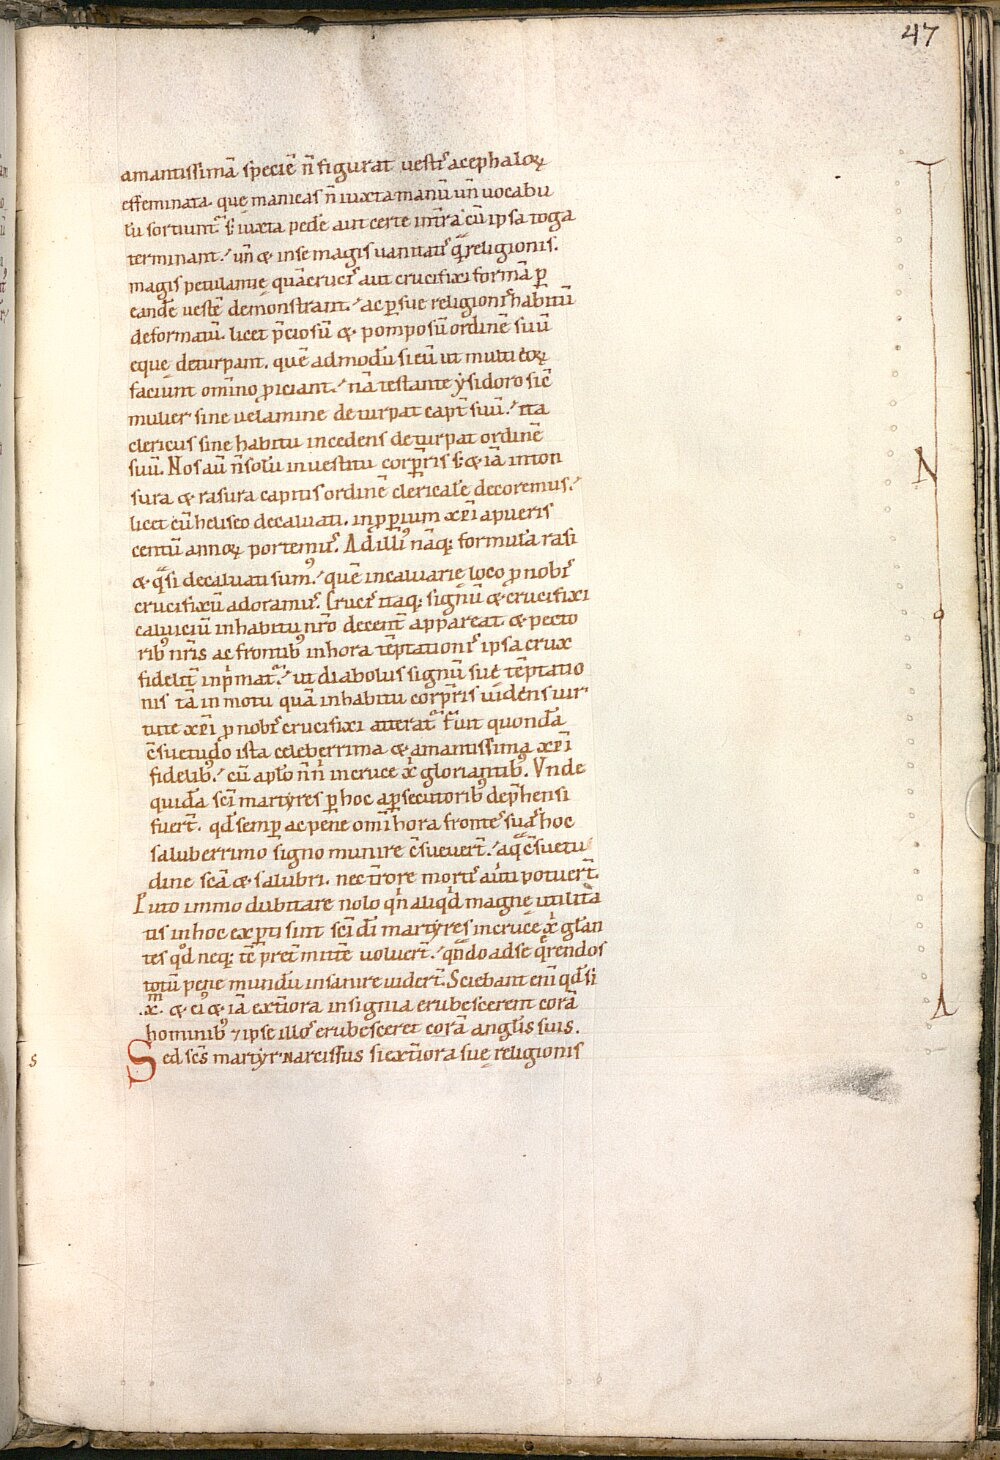 47
amantissimā speciē n̄ figurat uestis acephaloꝝ
effeminata. que manicas n̄ iuxta manū un̄ uocabu
lū sortiunt̄. s; iuxta pedē aut certe intra cū ipsa toga
terminant. un̄ & in se magis uanitatis quā religionis.
magis petulantię quā crucis aut crucifixi formā ꝑ
eandē uestē demonstrant. ac ꝑ sue religionis habitū
deformatū. licet p̄ciosū & pomposū ordinē suū
eque deturpant. quē admodū si eū ut multi eoꝝ
faciunt om̄ino ꝓiciant. nā testante ysidoro sic̄
mulier sine uelamine deturpat caput̄ suū. ita
clericus sine habitu incedens deturpat ordinē
suū. Nos aū n̄ solū in uestitu corꝑis s; & iā in ton
sura & rasura capitis ordinē clericale decoremus.
licet cū heliseo decaluati. inꝓꝑium xp̄i a pueris
centū annoꝝ portemus. Ad illius nāq; formula rasi
& q̄si decaluati sumus. quē in caluarię loco ꝓ nobis
crucifixū adoramus. Crucis itaq; signū & crucifixi
caluiciū in habitu nr̄o decent̄ appareat & pecto
ribꝰ nr̄is ac frontibꝰ in hora tēptationis ipsa crux
fidelit̄ inprimatur. ut diabolus signū sue tēptatio
nis tā in motu quā in habitu corꝑis uidens uir
tute xp̄i ꝓ nobis crucifixi atteratur. Fuit quondā
c̄suetudo ista celeberrima & amantissima xp̄i
fidelibꝰ. cū aplo n̄ n̄i in cruce x̄ gloriantibꝰ. Vnde
quidā sc̄i martyres ꝑ hoc a ꝑsecutoribꝰ dep̄hensi
fuer̄t. qd̄ semꝑ ac pene om̄i hora frontes suas hoc
saluberrimo signo munire c̄sueuer̄t. a qua c̄suetu
dine sc̄a & salubri. nec t̄rore mortis auerti potuer̄t.
Puto immo dubitare nolo qn̄ aliqd̄ magnę utilita
tis in hoc exꝑti sint sc̄i dī martyres in cruce x̄ glān
tes qd̄ neq; tēp̄ret̄ mitt̄e uoluer̄t. quando ad se q̄rendos
totū pene mundū insanire uider̄t. Sciebant eni qd̄ si
.x̄. & eiꝰ & iā ext̄iora insignia erubescerent corā
hominibꝰ ⁊ ipse illos erubesceret corā anglis suis.
Sed sc̄s martyr narcissus si ext̄iora sue religionis
N
A
s